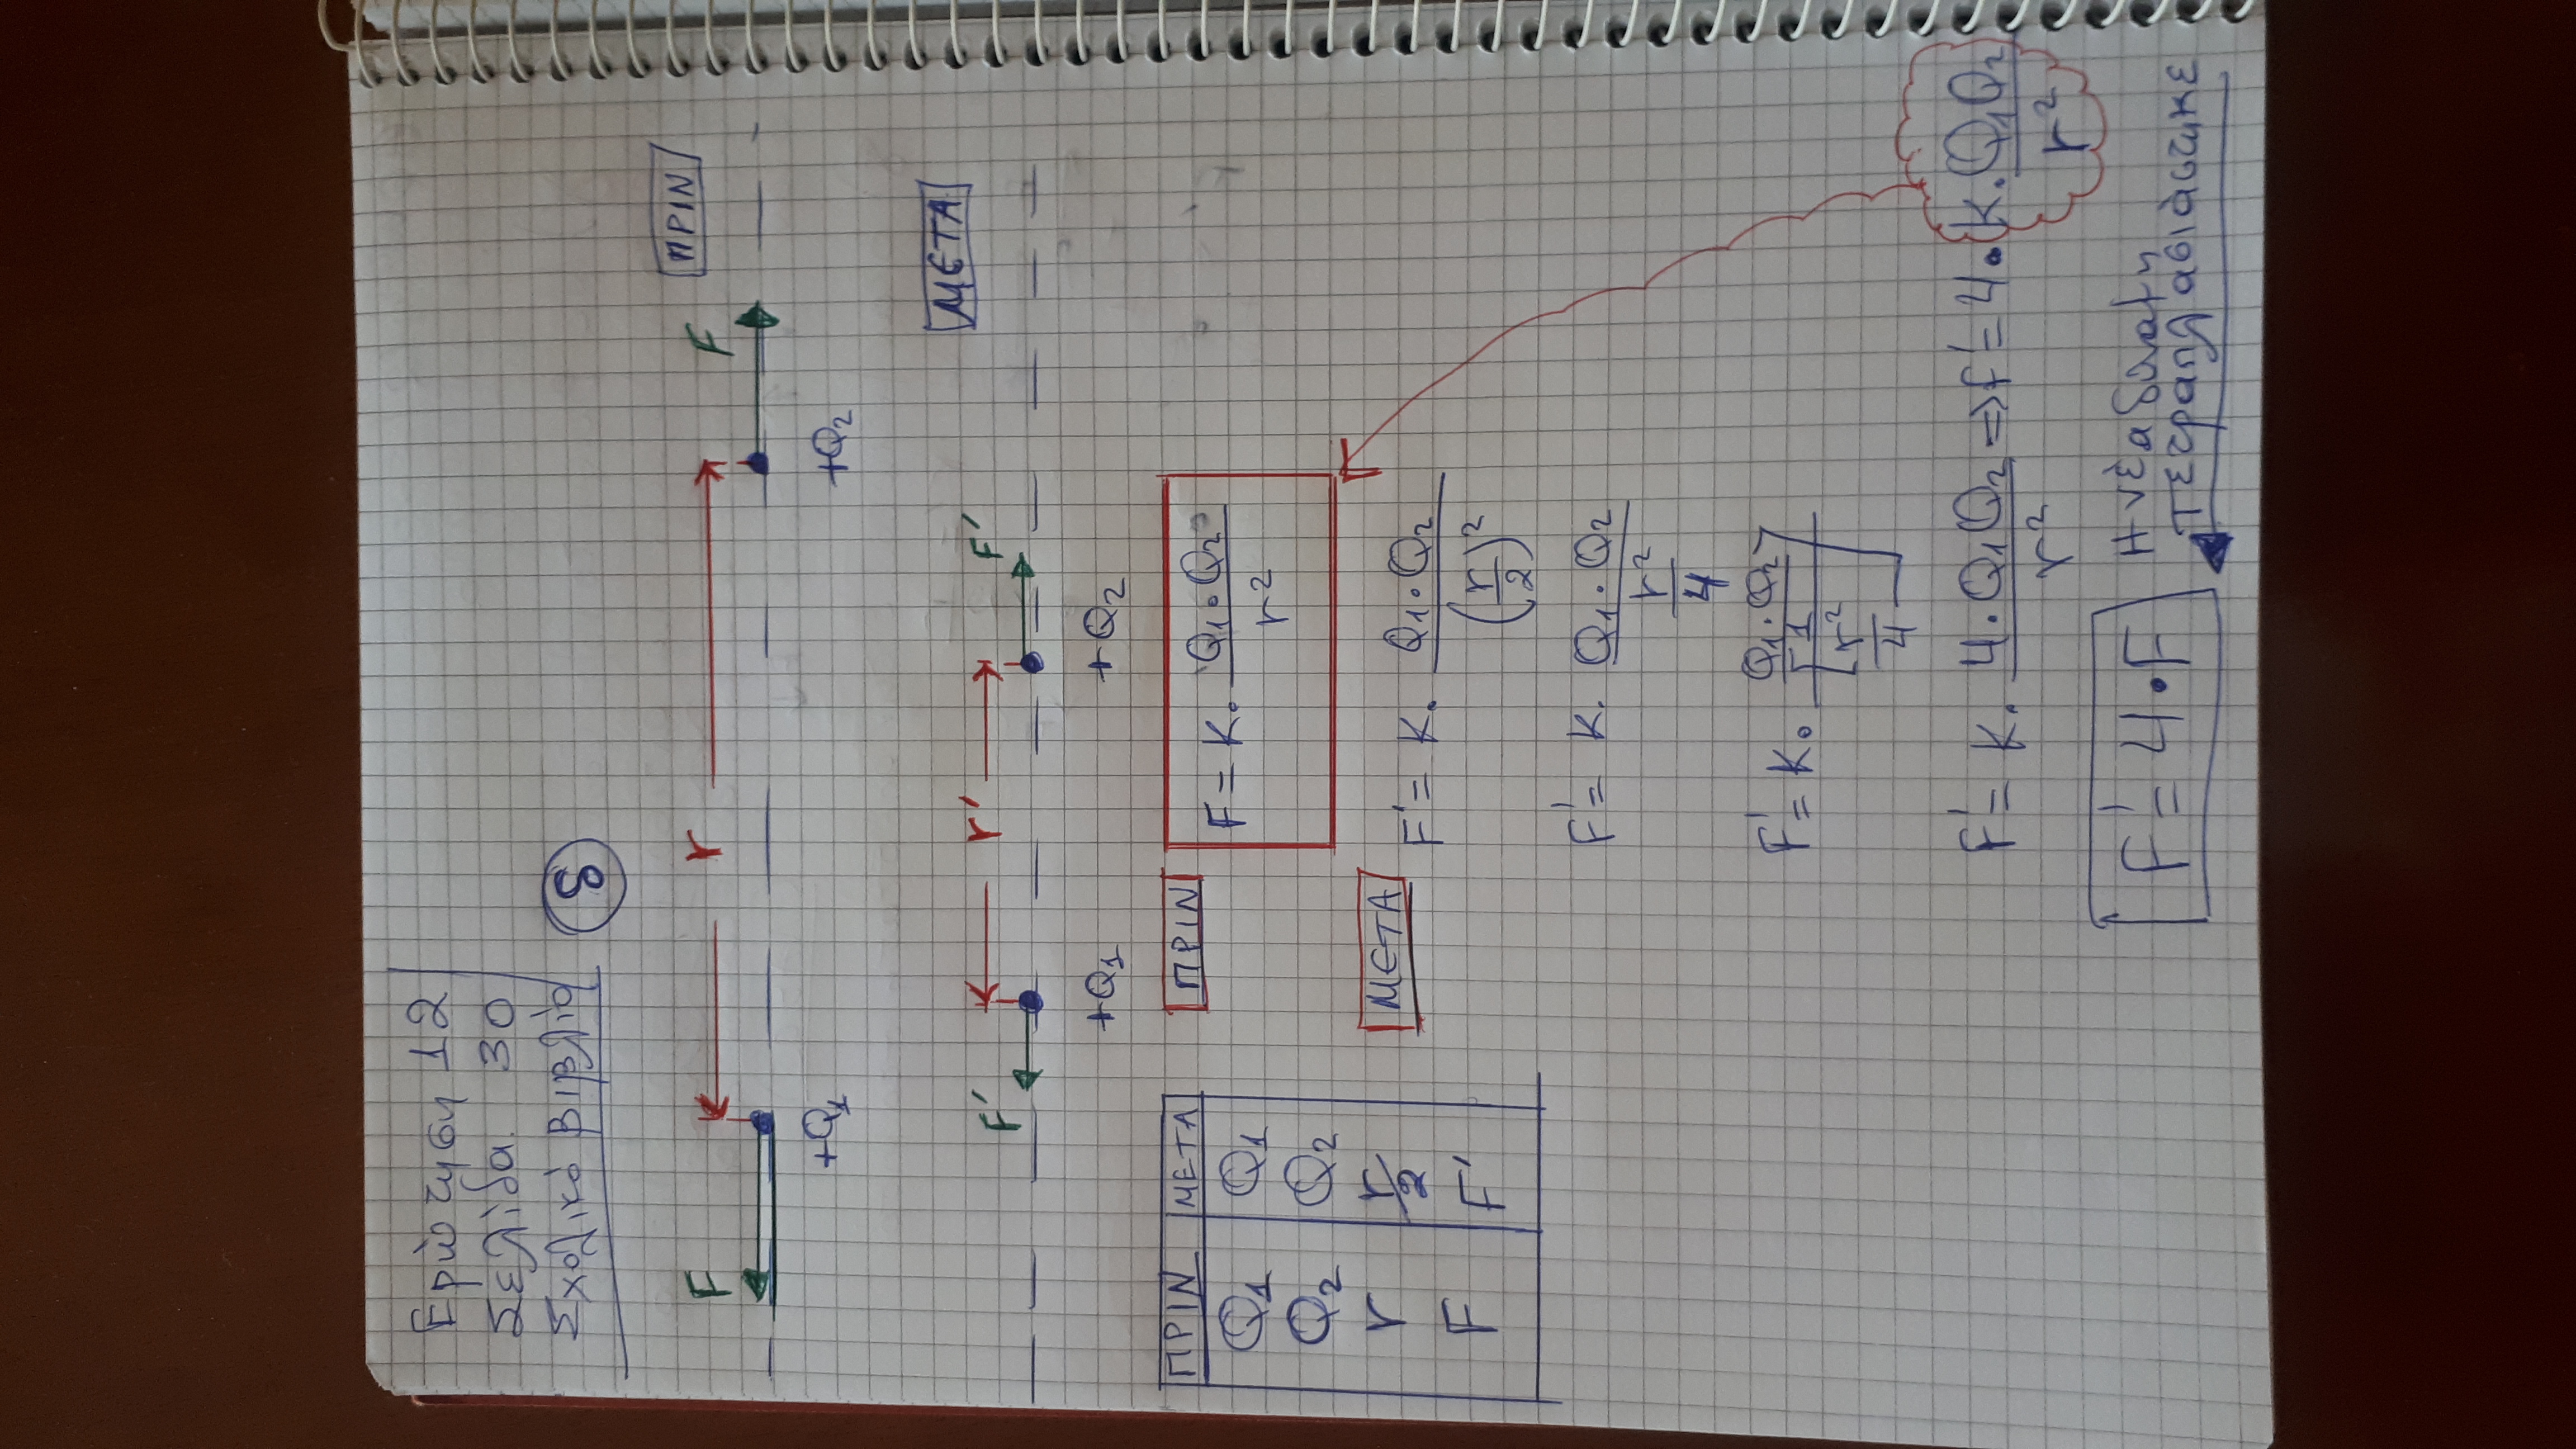 Ερώτηση 12
Σελίδα 30
Σχολικό Βιβλίο
δ
ΠΡΙΝ
F r F
+Q₁ +Q₂
ΜΕΤΑ
F' r' F'
+Q₁ +Q₂
ΠΡΙΝ ΜΕΤΑ
Q₁ Q₁
Q₂ Q₂
r r/2
F F'
ΠΡΙΝ F = K. Q₁.Q₂ / r²
ΜΕΤΑ F' = K. Q₁.Q₂ / (r/2)²
F' = K. Q₁.Q₂ / r²/4
F' = K. Q₁.Q₂/1 / r²/4
F' = K. 4.Q₁Q₂ / r² => F' = 4. K.Q₁Q₂ / r²
F' = 4.F
Η νέα δύναμη
τετραπλασιάστηκε